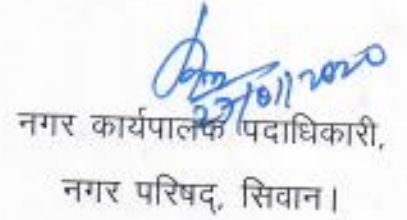 23/01/2020
नगर कार्यपालक पदाधिकारी,
नगर परिषद्, सिवान।